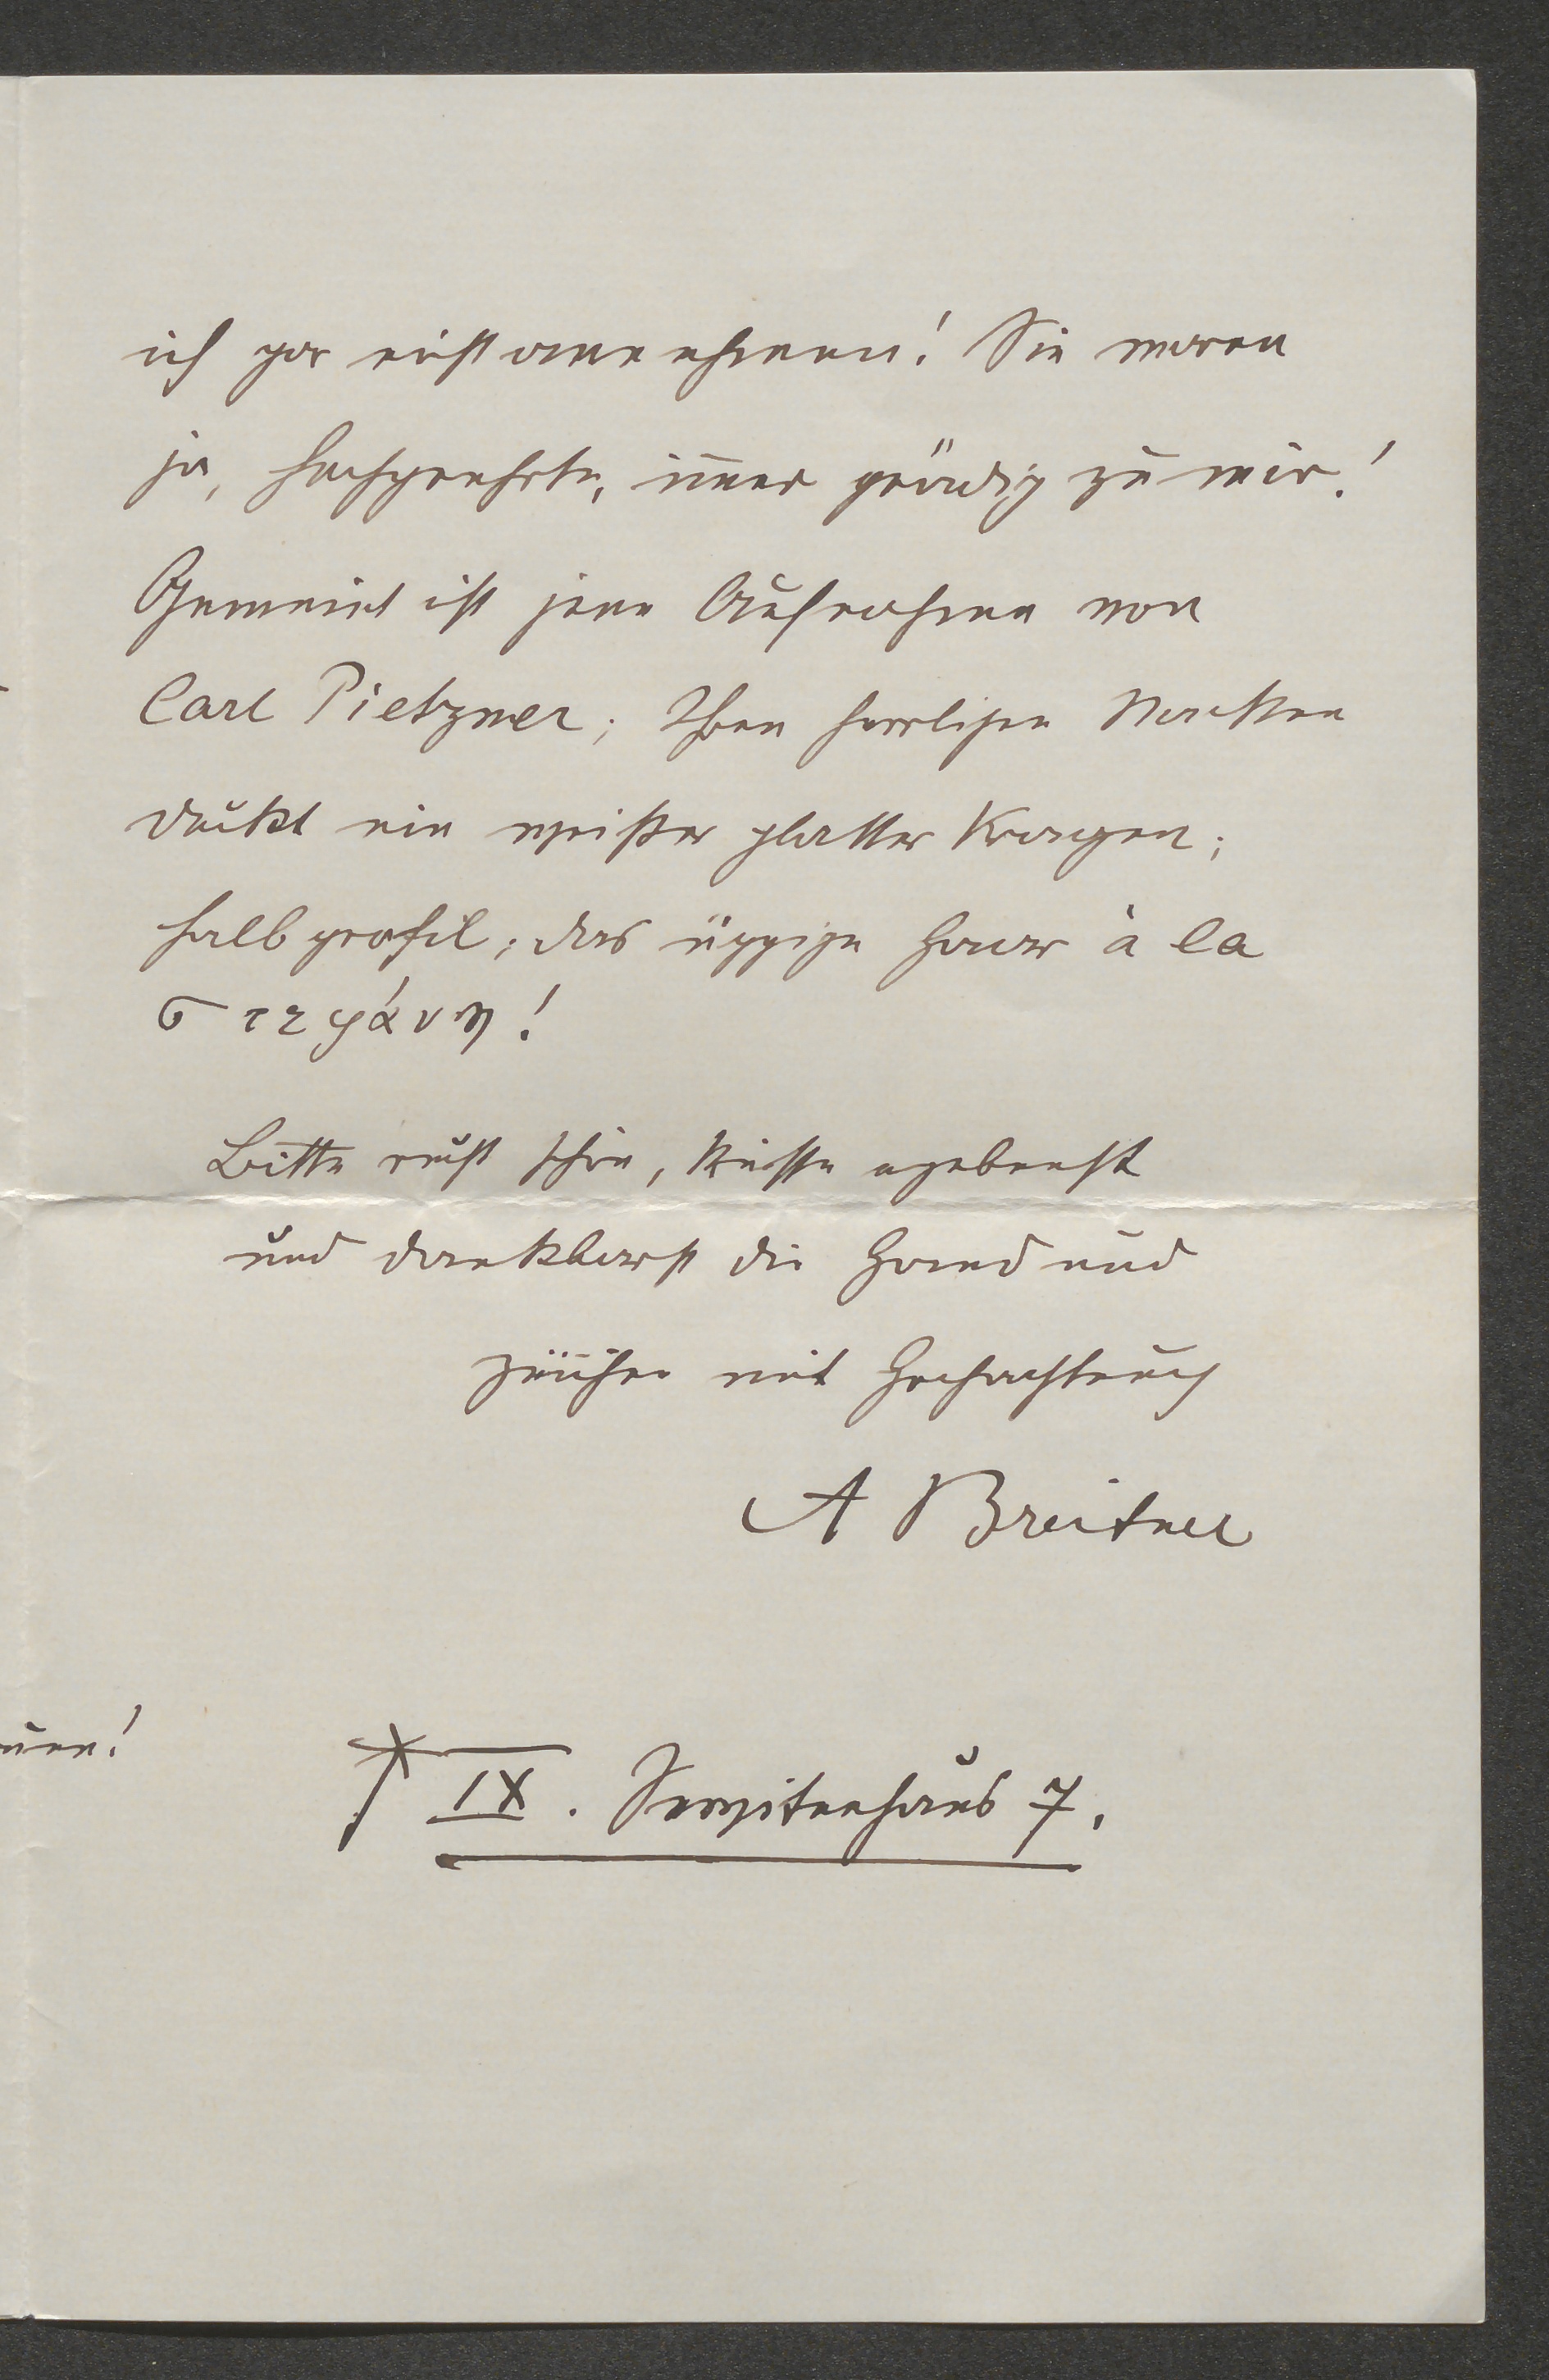 ich gar nicht annehmen! Sie waren
ja, hochgeehrte, im̅er gnädig zu mir!
Gemeint ist jene Aufnahme von
Carl Pietzner; Ihren herrlichen Nacken
deckt ein weißer glatter Kragen;
halb profil; das üppige Haar à la
στεφάνη!
Bitte recht schön, küsse ergebenst
und dankbarst die Hand und
zeichne mit Hochachtung
A Breitner
IX. Servitenhaus 7.